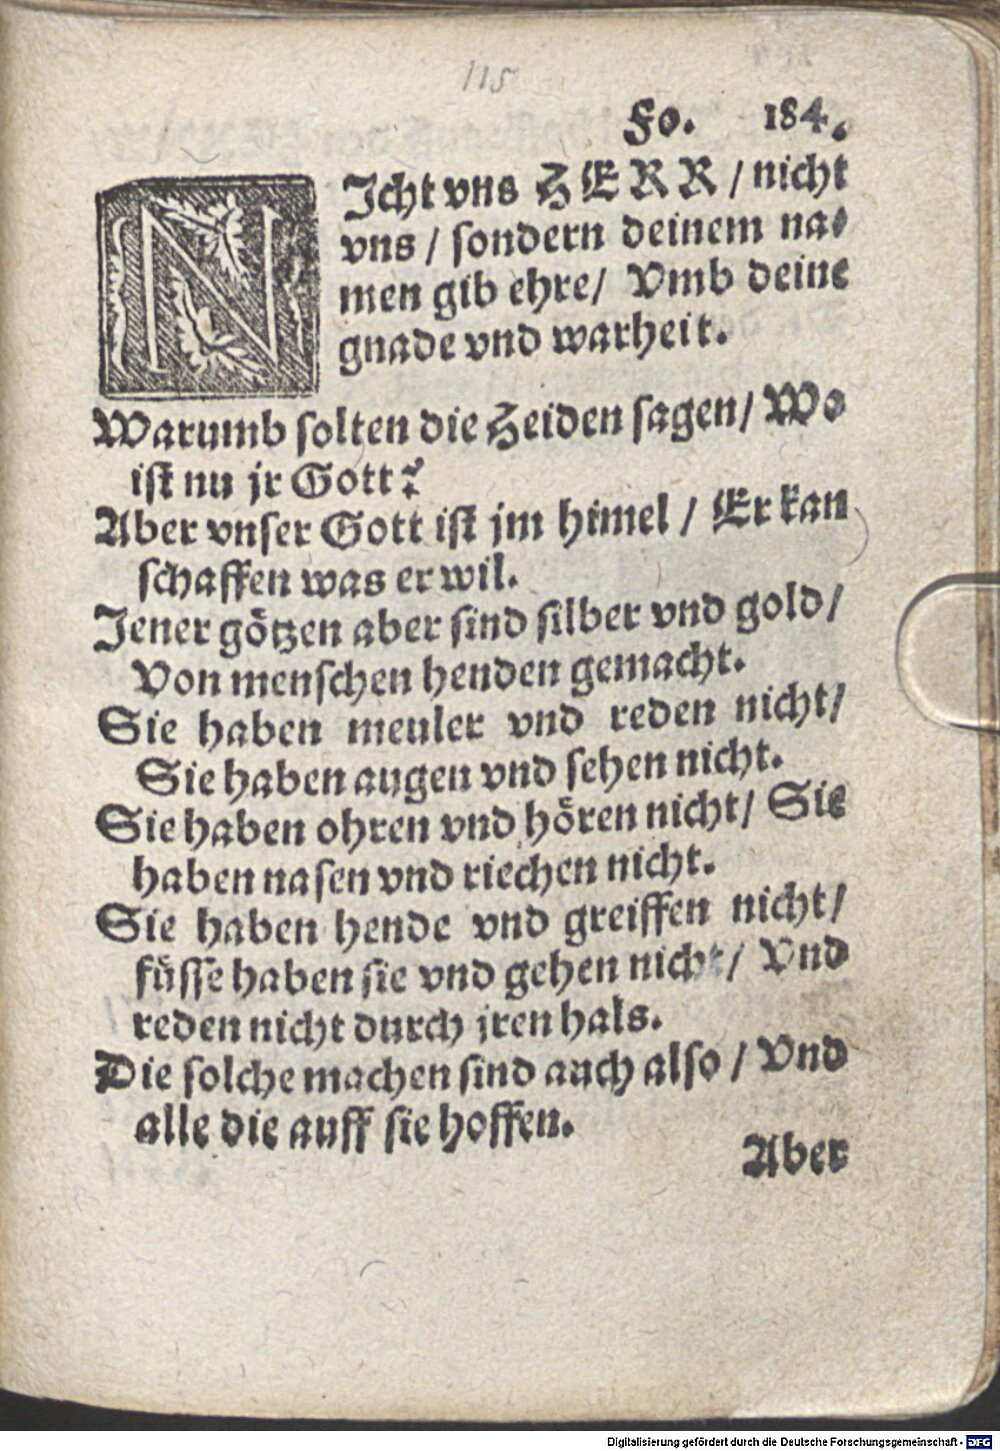 115
Fo. 184.
NJcht vns HERR / nicht
vns / sondern deinem na⸗
men gib ehre / Vmb deine
gnade vnd warheit.
Warumb solten die Heiden sagen / Wo
ist nu jr Gott?
Aber vnser Gott ist jm himel / Er kan
schaffen was er wil.
Jener götzen aber sind silber vnd gold /
Von menschen henden gemacht.
Sie haben meuler vnd reden nicht /
Sie haben augen vnd sehen nicht.
Sie haben ohren vnd hören nicht / Sie
haben nasen vnd riechen nicht.
Sie haben hende vnd greiffen nicht /
füsse haben sie vnd gehen nicht / Vnd
reden nicht durch jren hals.
Die solche machen sind auch also / Vnd
alle die auff sie hoffen.
Aber
Digitalisierung gefördert durch die Deutsche Forschungsgemeinschaft - DFG